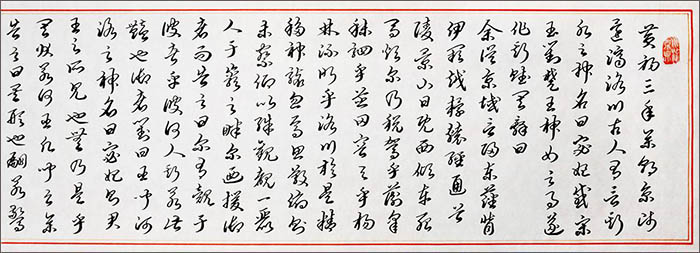 黄初三年余朝京師
還濟洛川古人有言斯
水之神名曰宓妃感宋
玉對楚王神女之事遂
作斯賦其辭曰
余從京域言歸東藩背
伊闕越轘轅經通谷
陵景山日既西傾車殆
馬煩爾乃稅駕乎蘅皋
秣駟乎芝田容與乎楊
林流眄乎洛川於是精
移神駭忽焉思散俯則
未察仰以殊觀覩一麗
人于巖之畔爾迺援御
者而告之曰爾有覿乎
彼者乎彼何人斯若此
豔也御者對曰臣聞河
洛之神名曰宓妃則君
王之所見也無乃是乎
其狀若何臣願聞之余
告之曰其形也翩若驚